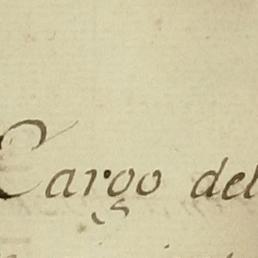 Cargo del